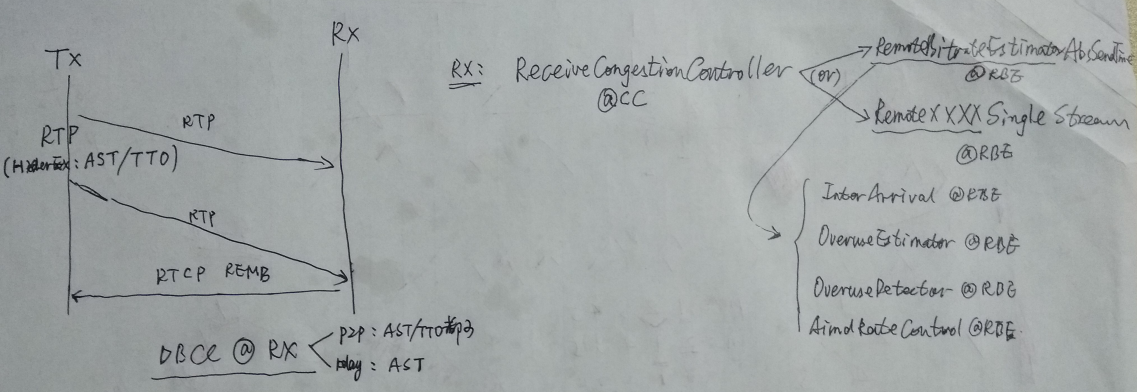 Tx
Rx
RTP
RTP
(HdrExt: AST/TTO)
RTP
RTCP REMB
DBCC @ RX
P2P: AST/TTO都可
Relay: AST
RX: ReceiveCongestionController
@CC
(or)
RemoteBitrateEstimatorAbsSendTime
@RBE
RemoteXXXXSingleStream
@RBE
InterArrival @RBE
OveruseEstimator @RBE
OveruseDetector @RBE
AimdRateControl @RBE